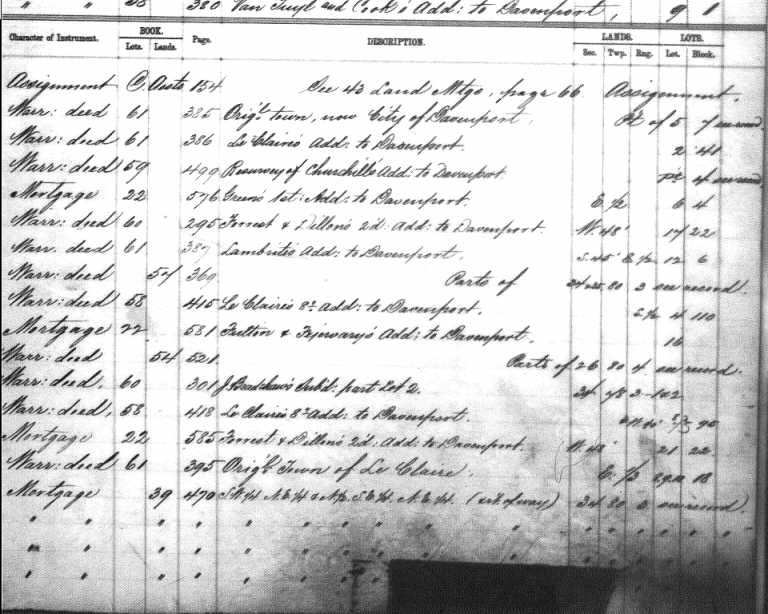 " " 58 380 Van Tuyl and Cook's Add: to Davenport, 9 1
Character of Instrument. BOOK. Page. DESCRIPTION. LANDS. LOTS.
Lots. Lands. Sec. Twp. Rng. Lot. Block.
Assignment C, 154 See 43 Land Mtge, page 66. Assignment.
Warr: deed 61 385 Orig'l town, now City of Davenport, Pt of 5 7 see record.
Warr: deed 61 386 Le Claire's Add: to Davenport. 2 41
Warr: deed 59 499 Resurvey of Churchill's Add: to Davenport Pt 4 see record
Mortgage 22 576 Green's 1st: Add: to Davenport. E. 1/2 6 4
Warr: deed 60 295 Forrest & Dillon's 2d: Add: to Davenport. W. 48' 17 22
Warr. deed 61 387 Lambrite's Add: to Davenport. S. 45' E 1/2 12 6
Warr: deed 57 369 Parts of 80 3 see record.
Warr: deed 58 415 Le Claire's 8th Add: to Davenport. S. 1/2 4 110
Mortgage 22 581 Fulton & Fejervary's Add: to Davenport. 16
Warr: deed 54 521. Parts of 26 80 4. see record.
Warr: deed. 60 301 J Bradshaw's Subd: part Lot 2. 34 78 2
Warr: deed, 58 418 Le Claire's 8th Add: to Davenport. 95
Mortgage 22 585 Forrest & Dillon's 2d: Add: to Davenport. W. 48' 21 22
Warr: deed 61 395 Orig'l Town of Le Claire. E. 1/3 18
Mortgage 39 470 S.W. 1/4 N.E. 1/4 & N 1/2 S.E. 1/4 N.E. 1/4. (of way) 34 80 3 see record.
" " " " " " " " "
" " " " " " "
" " " " "